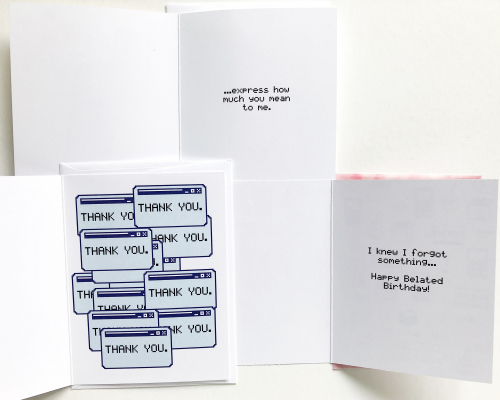 ...express how
much you mean
to me.
THANK YOU.
THANK YO
ANK YOU.
THANK YOU.
THANK YOU.
THANK
YOU.
THANK YOU.
I knew I forgot
something...
Happy Belated
Birthday!